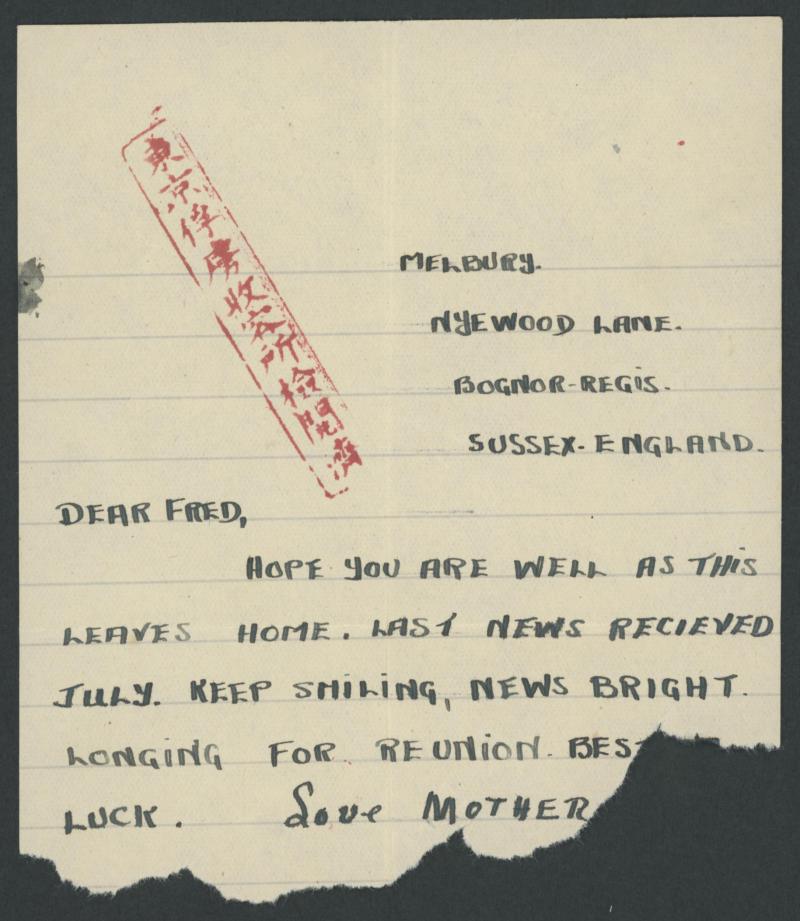 東京俘虜收容所檢閲濟
MELBURY.
NYEWOOD LANE.
BOGNOR-REGIS.
SUSSEX-ENGLAND.
DEAR FRED,
HOPE YOU ARE WELL AS THIS
LEAVES HOME. LAST NEWS RECIEVED
JULY. KEEP SMILING, NEWS BRIGHT.
LONGING FOR REUNION. BEST
LUCK. Love MOTHER